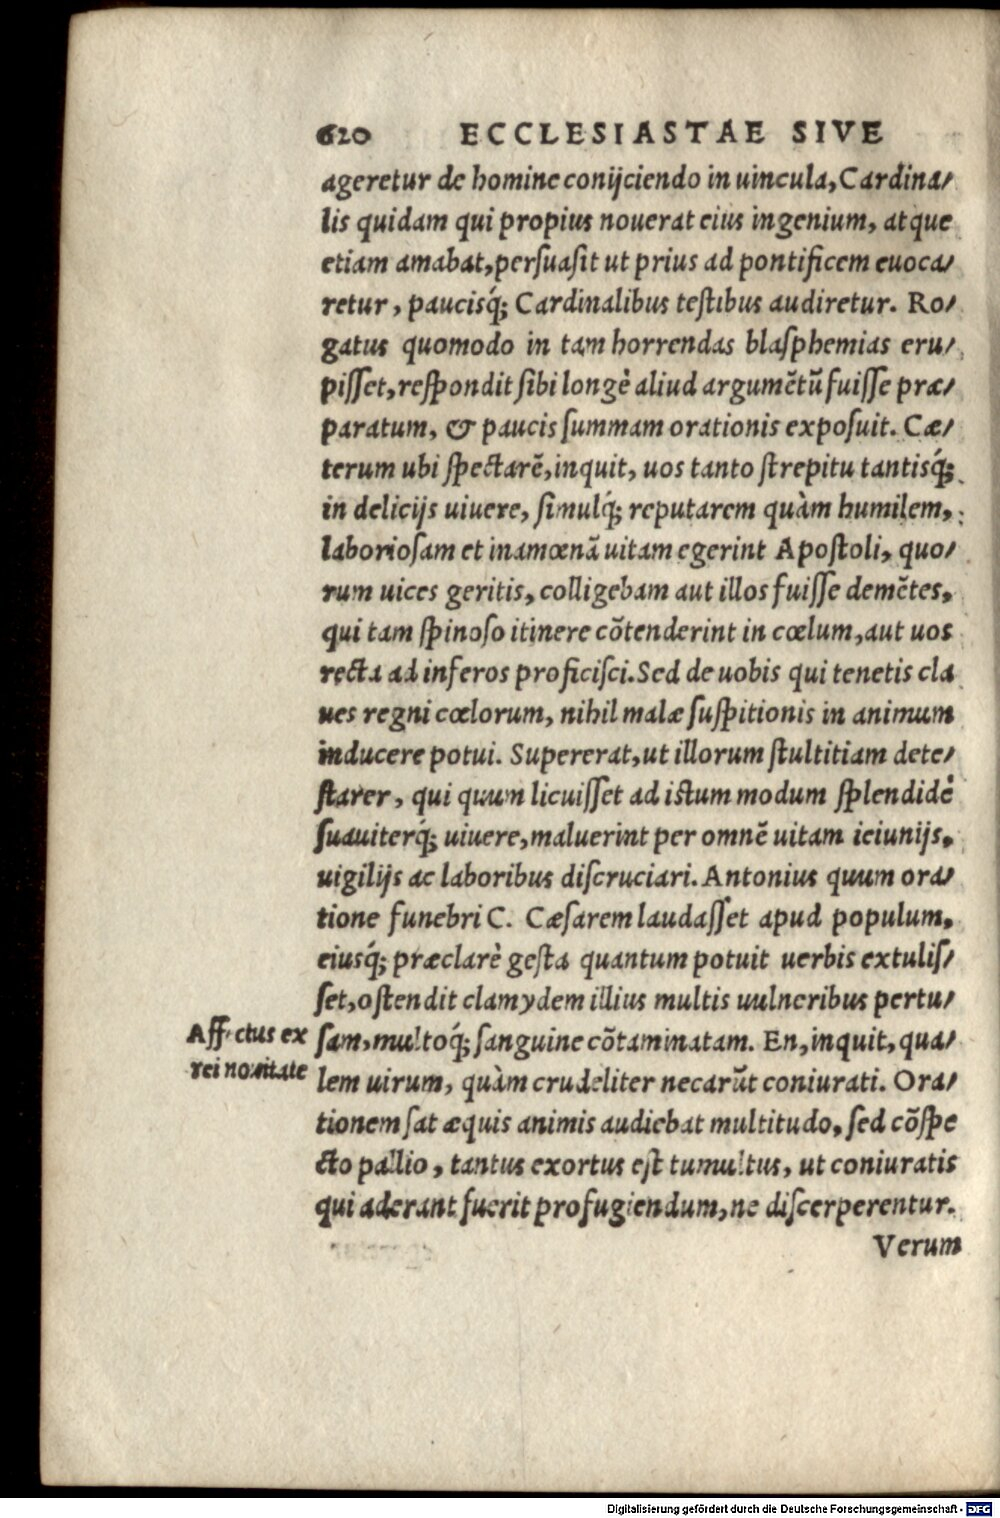 620 ECCLESIASTAE SIVE
ageretur de homine conijciendo in uincula, Cardina/
lis quidam qui propius nouerat eius ingenium, atque
etiam amabat, persuasit ut prius ad pontificem euoca/
retur, paucisq́; Cardinalibus testibus audiretur. Ro/
gatus quomodo in tam horrendas blasphemias eru/
pisset, respondit sibi longè aliud argumẽtũ fuisse præ/
paratum, & paucis summam orationis exposuit. Cæ/
terum ubi spectarẽ, inquit, uos tanto strepitu tantisq́;
in delicijs uiuere, simulq́; reputarem quàm humilem,
laboriosam et inamœnã uitam egerint Apostoli, quo/
rum uices geritis, colligebam aut illos fuisse demẽtes,
qui tam spinoso itinere cõtenderint in cœlum, aut uos
recta ad inferos proficisci. Sed de uobis qui tenetis cla
ues regni cœlorum, nihil malæ suspitionis in animum
inducere potui. Supererat, ut illorum stultitiam dete/
starer, qui quum licuisset ad istum modum splendidè
suauiterq́; uiuere, maluerint per omnẽ uitam ieiunijs,
uigilijs ac laboribus discruciari. Antonius quum ora/
tione funebri C. Cæsarem laudasset apud populum,
eiusq́; præclarè gesta quantum potuit uerbis extulis/
set, ostendit clamydem illius multis uulneribus pertu/
Affectus ex
rei nouitate
sam, multoq́; sanguine cõtaminatam. En, inquit, qua/
lem uirum, quàm crudeliter necarũt coniurati. Ora/
tionem sat æquis animis audiebat multitudo, sed cõspe
cto pallio, tantus exortus est tumultus, ut coniuratis
qui aderant fuerit profugiendum, ne discerperentur.
Verum
Digitalisierung gefördert durch die Deutsche Forschungsgemeinschaft - DFG